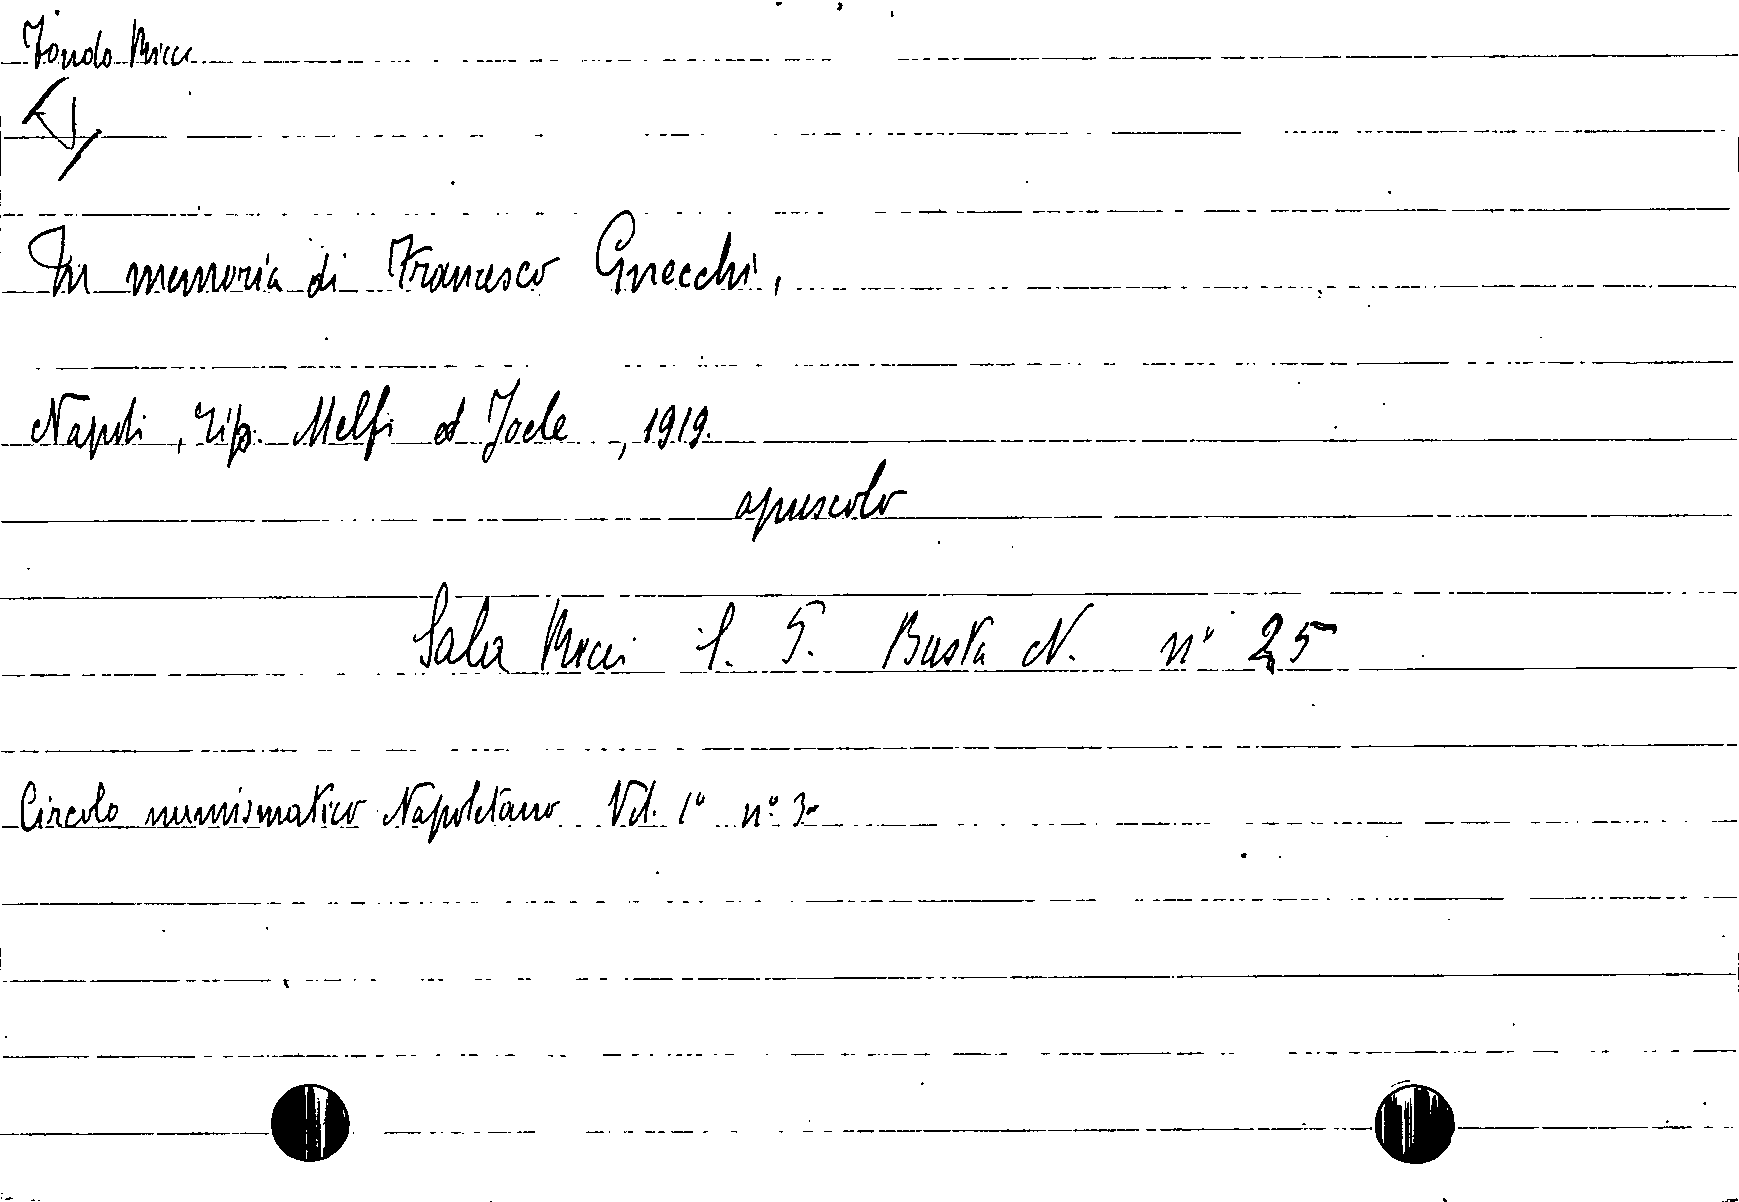 Fondo Ricci
In memoria di Francesco Gnecchi,
Napoli, Tip. Melfi et Joele, 1919.
opuscolo
Sala Ricci S. 5. Busta N. n° 25
Circolo numismatico Napoletano Vol. 1° n° 3-